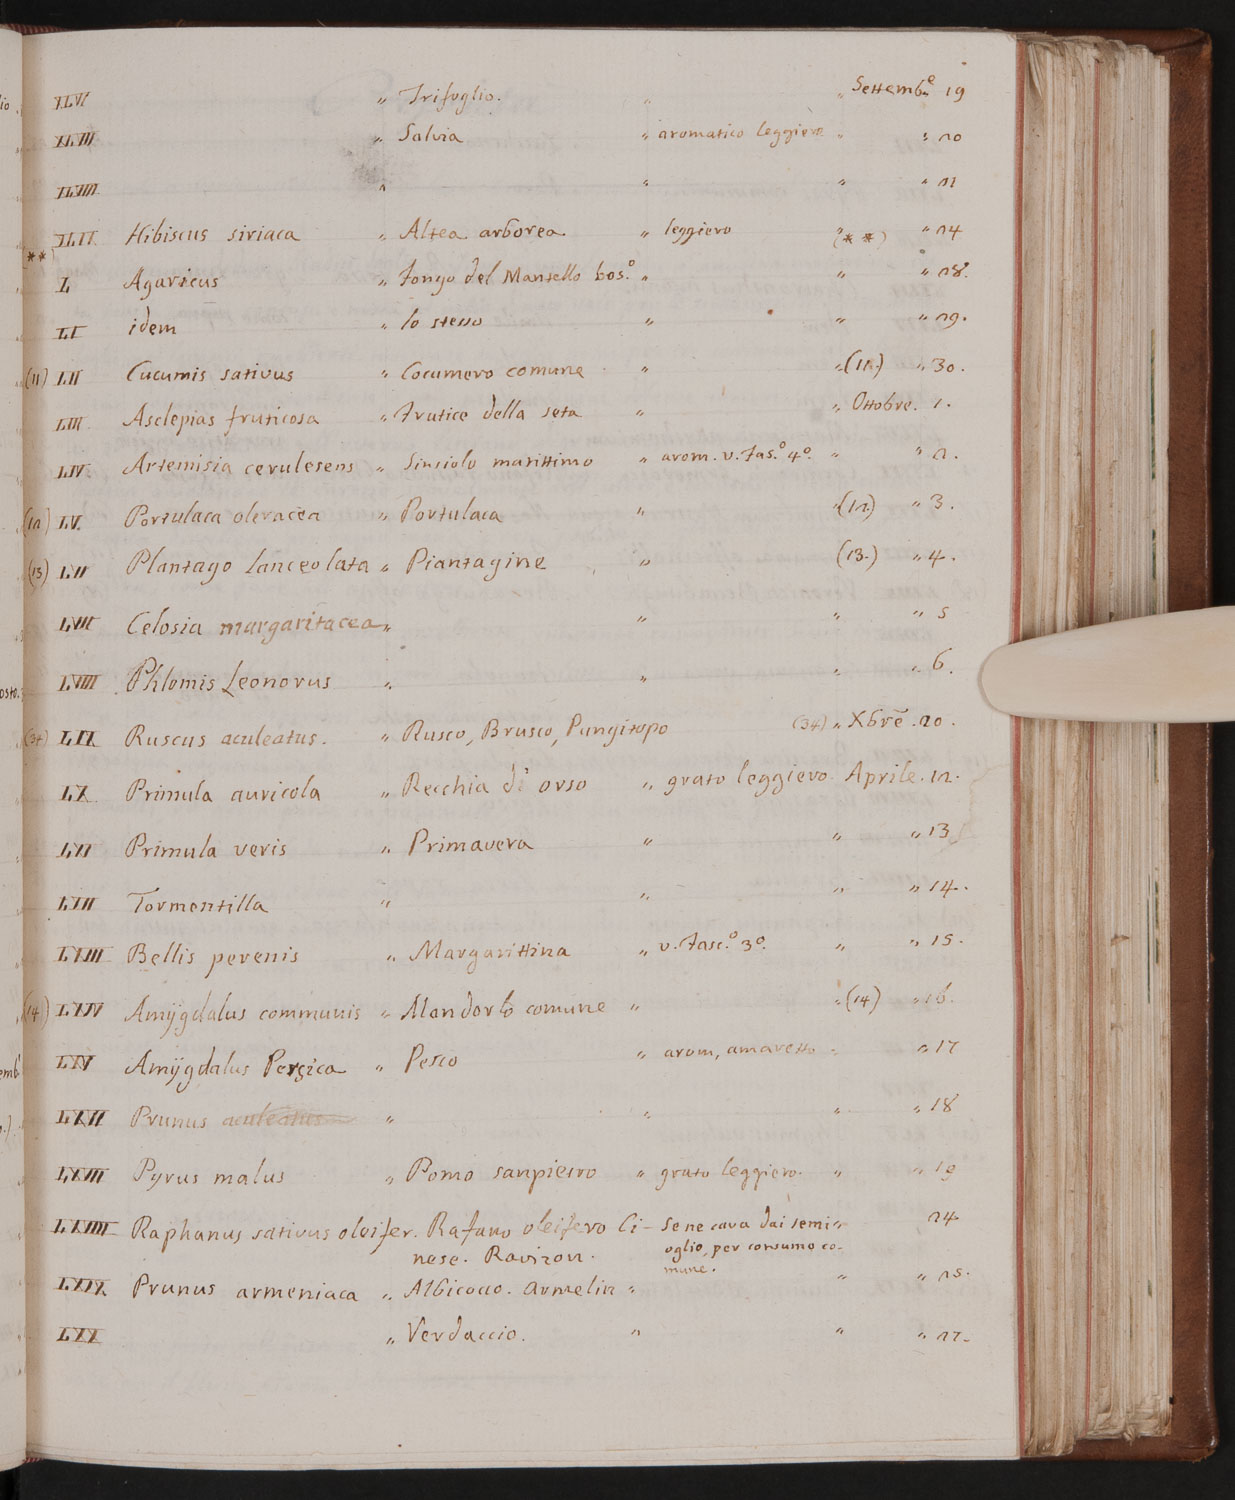 XLVI „ Trifoglio. „ „ Settemb.e 19
XLVII „ Salvia „ aromatico leggiere „ „ 20
XLVIII „ „ „ „ 21
XLIX Hibiscus siriaca „ Altea arborea „ leggiero „ (**) „ 24
(**) L Agaricus „ Fongo del Mantello bos.o „ „ „ 28.
LI idem „ lo stesso „ „ „ 29.
(11) LII Cucumis sativus „ Cocumero comune „ „ (11.) „ 30.
LIII Asclepias fruticosa „ Frutice della seta „ „ Ottobre. 1.
LIV. Artemisia cerulesens „ Sinsiolo marittimo „ arom. v. Fas.o 4o. „ „ 2.
(12) LV. Portulaca oleracea „ Portulaca „ „ (12) „ 3.
(13) LVI Plantago Lanceolata „ Piantagine „ (13.) „ 4.
LVII Celosia margaritacea „ „ „ „ 5
LVIII Phlomis Leonorus „ „ „ „ 6.
(34) LIX Ruscus aculeatus. „ Rusco, Brusco, Pungitopo (34) „ Xbre. 20.
LX Primula auricola „ Recchia di orso „ grato leggiero. Aprile. 12.
LXI Primula veris „ Primavera „ „ „ 13
LXII Tormentilla „ „ „ „ 14.
LXIII Bellis perenis „ Margarittina „ v. Fasc.o 3o. „ „ 15.
(14) LXIV Amÿgdalus communis „ Mandorlo comune „ „ (14) „ 16.
LXV Amÿgdalus Persica „ Pesco „ arom, amaretto „ „ 17
LXVI Prunus aculeatus „ „ „ „ 18
LXVII Pyrus malus „ Pomo sanpietro „ grato leggiero. „ „ 19
LXVIII Raphanus sativus oleifer. Rafano oleifero Ci- Se ne cava dai semi „ 24
nese. Ravizon. oglio, per consumo co-
mune.
LXIX Prunus armeniaca „ Albicocco. Armelin „ „ „ 25.
LXX „ Verdaccio. „ „ „ 27.